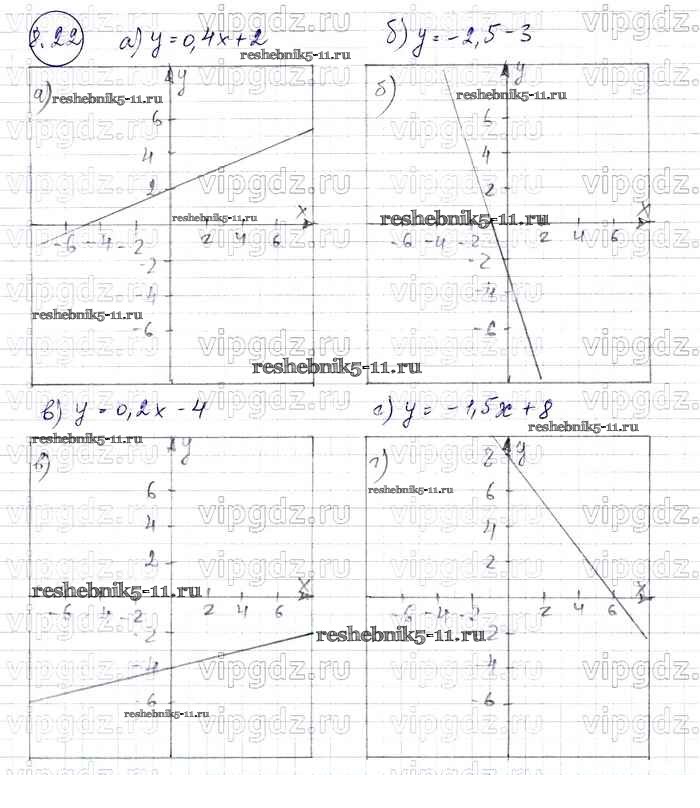 8.22 а) y = 0,4x + 2 б) y = -2,5 - 3
reshebnik5-11.ru
а) y
б) y
reshebnik5-11.ru reshebnik5-11.ru
vipgdz.ru vipgdz.ru vipgdz.
6 6
4 4
2 2
reshebnik5-11.ru x
reshebnik5-11.ru x
-6 -4 -2 2 4 6
-6 -4 -2 2 4 6
-2 -2
-4 -4
reshebnik5-11.ru
-6 -6
vipgdz.ru vipgdz.ru vipgdz.
reshebnik5-11.ru
в) y = 0,2x - 4 г) y = -1,5x + 8
reshebnik5-11.ru
reshebnik5-11.ru
в) y
г) 8 y
6 6
reshebnik5-11.ru
4 4
2 2
reshebnik5-11.ru x
x
-6 -4 -2 2 4 6
2 4 6
-2 -2
reshebnik5-11.ru
-4 -4
vipgdz.ru vipgdz.ru vipgdz.
-6 -6
reshebnik5-11.ru
vipgdz.ru vipgdz.ru vipgdz.